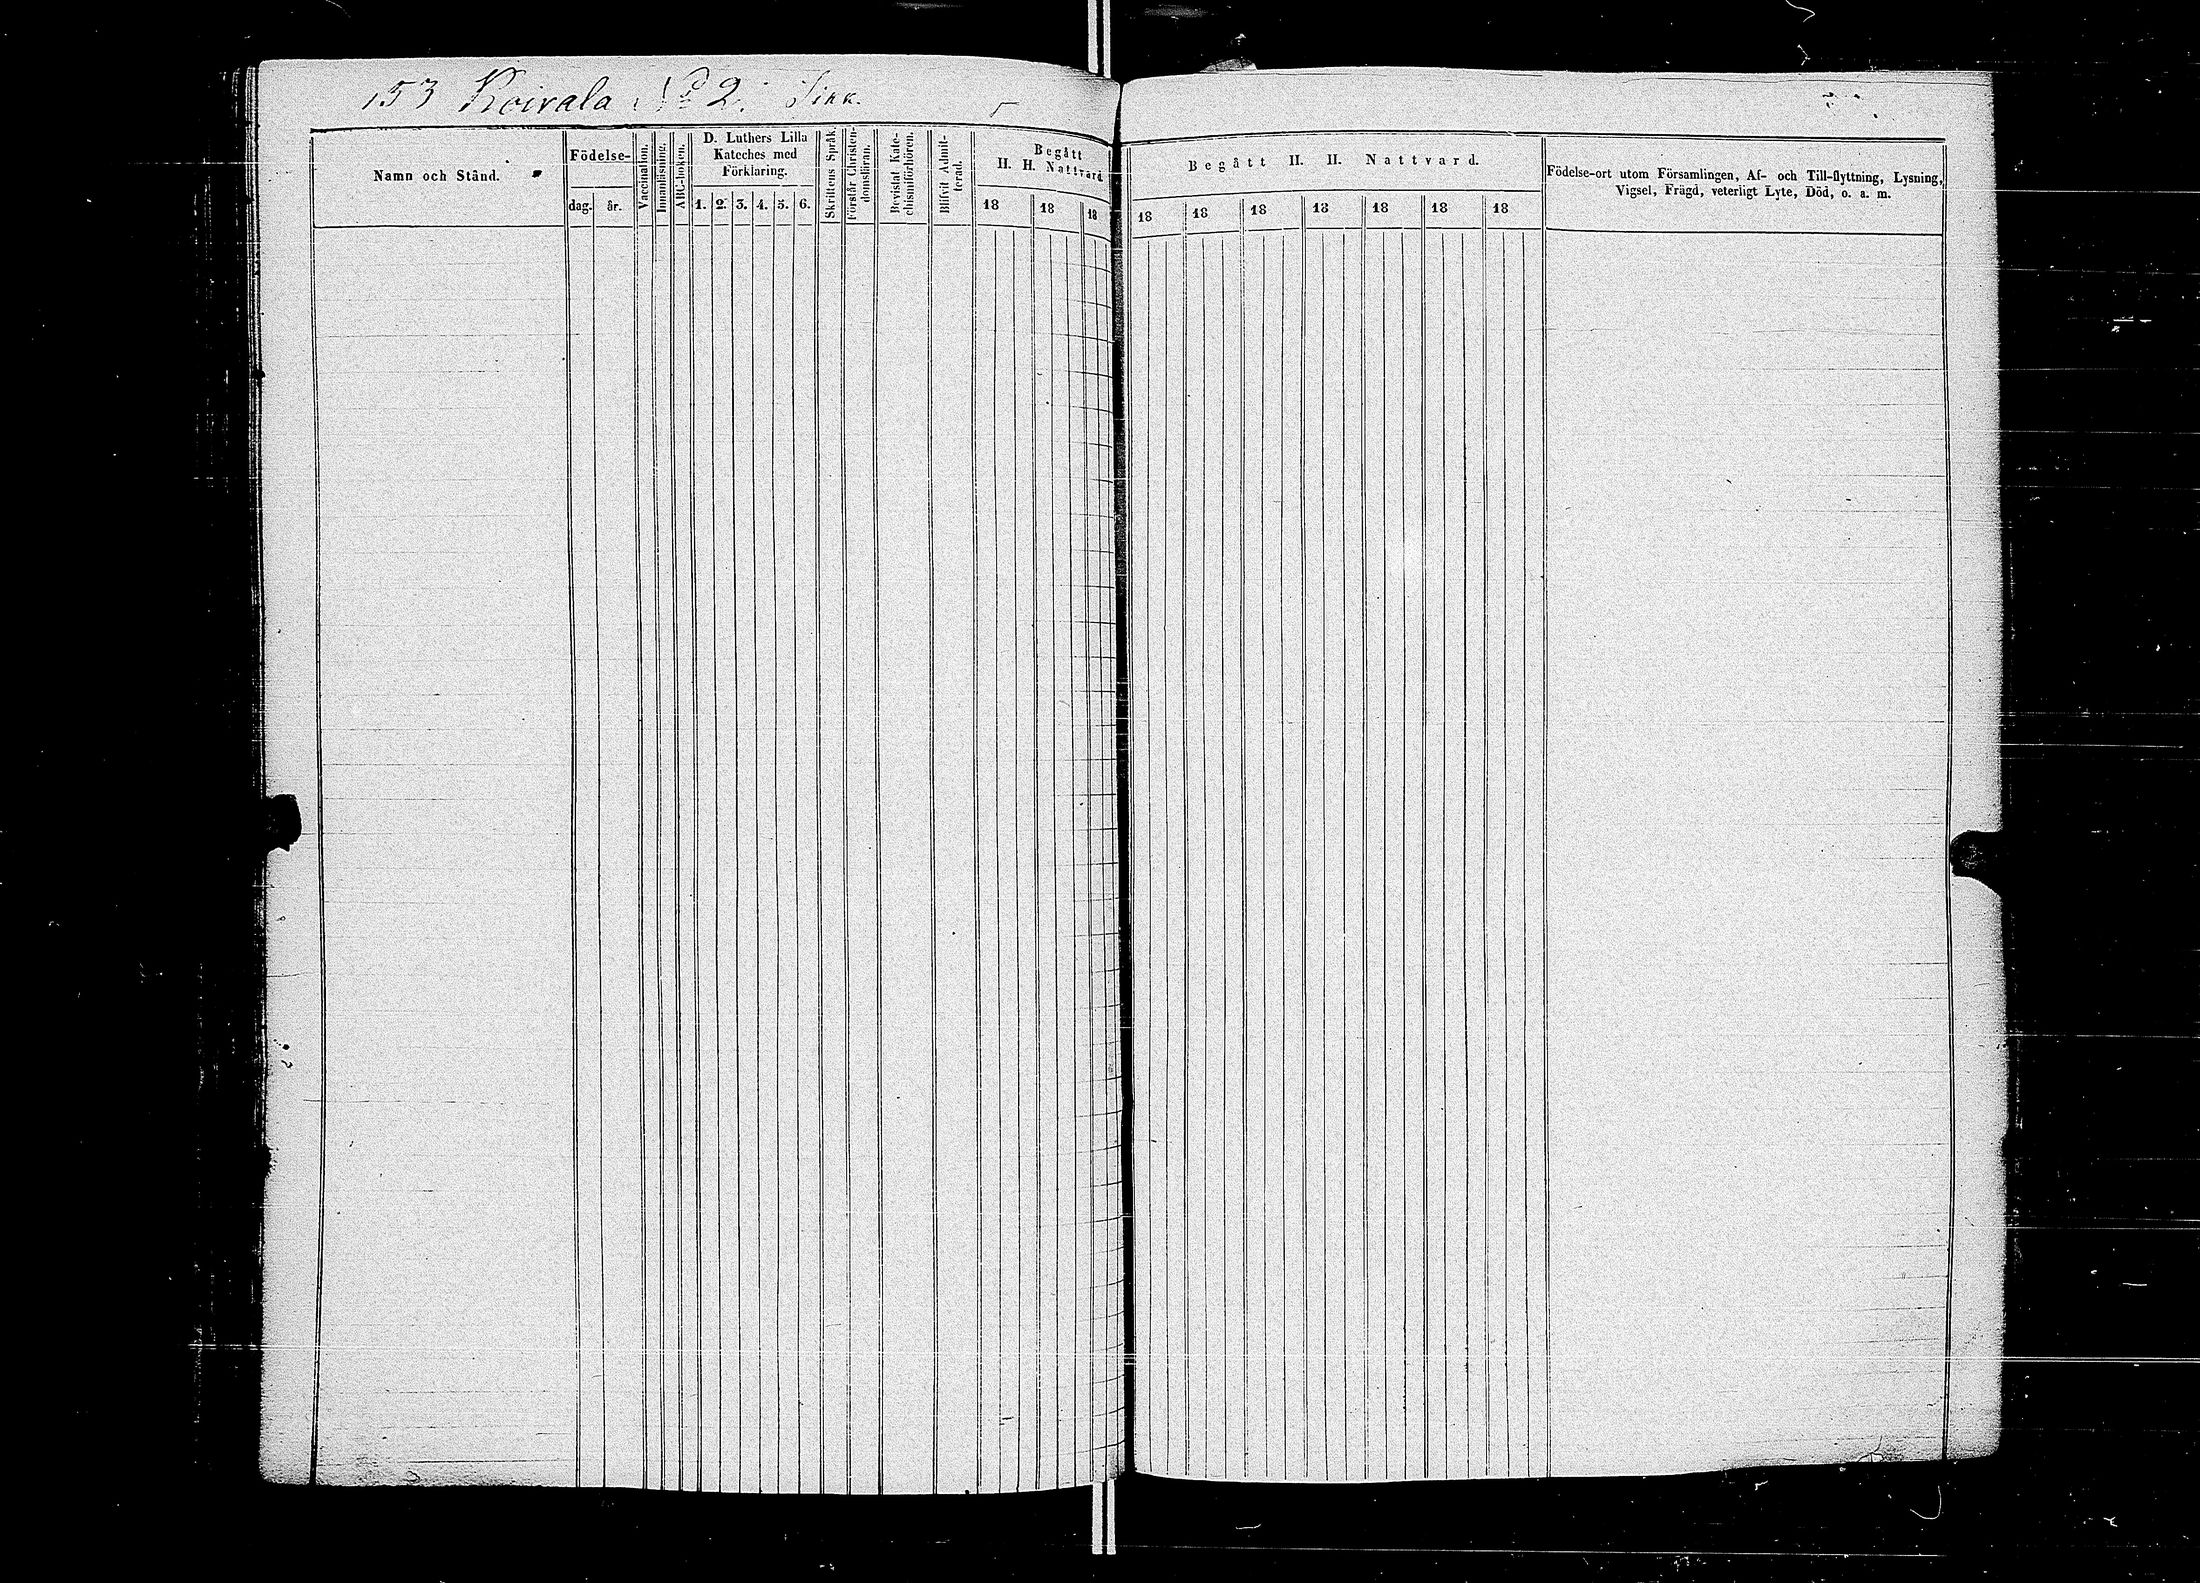 153 Koivala No 2.
Namn och Stånd.
Födelse-
dag. år.
Vaccination.
Innanläsning.
ABC-boken.
D. Luthers Lilla
Kateches med
Förklaring.
1. 2. 3. 4. 5. 6.
Skriftens Språk.
Förstår Christen-
domsläran.
Bevistat Kate-
chismiförhören.
Blifvit Admit-
terad.
Begått
H. H. Nattvard
18 18 18
Begått H. H. Nattvard.
18 18 18 18 18 18 18
Födelse-ort utom Församlingen, Af- och Till-flyttning, Lysning,
Vigsel, Frägd, veterligt Lyte, Död, o. a. m.